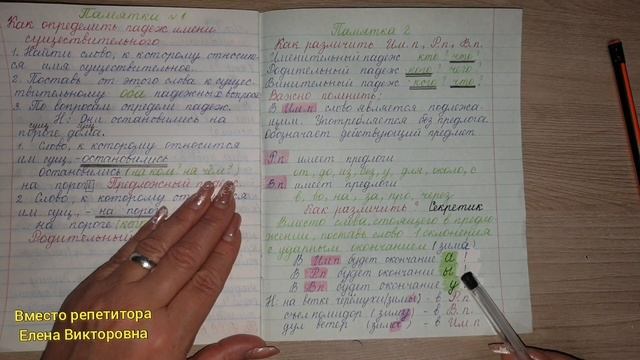 Памятка №1
Как определить падеж имени
существительного
1. Найти слово, к которому относит-
ся имя существительное.
2. Поставь от этого слова к сущес-
твительному оба падежных вопроса
3. По вопросам определи падеж.
Н: Они остановились на
пороге дома.
1. Слово, к которому относится
им. сущ. - остановились
Остановились (на ком? на чём?)
на пороге Предложный падеж.
2. Слово, к которому
им. сущ, - на поро
на пороге
Родительный
Памятка 2
Как различить Им.п, Р.п, В.п.
Именительный падеж кто? что?
Родительный падеж кого? чего?
Винительный падеж кого? что?
Важно помнить!
В Им.п слово является подлежа-
щим. Употребляется без предлога.
Обозначает действующий предмет
Р.п имеет предлоги
от, до, из, без, у, для, около, с
В.п имеет предлоги
в, во, на, за, про, через
Как различить? Секретик
Вместо слова, стоящего в предло-
жении, поставь слово 1 склонения
с ударным окончанием (зима)
В Им.п будет окончание а
В Р.п будет окончание ы
В В.п будет окончание у
Н: на ветке черёмухи (зимы) - в Р.п
съел помидор (зиму) - в В.п.
дул ветер (зима) - в Им.п
Вместо репетитора
Елена Викторовна